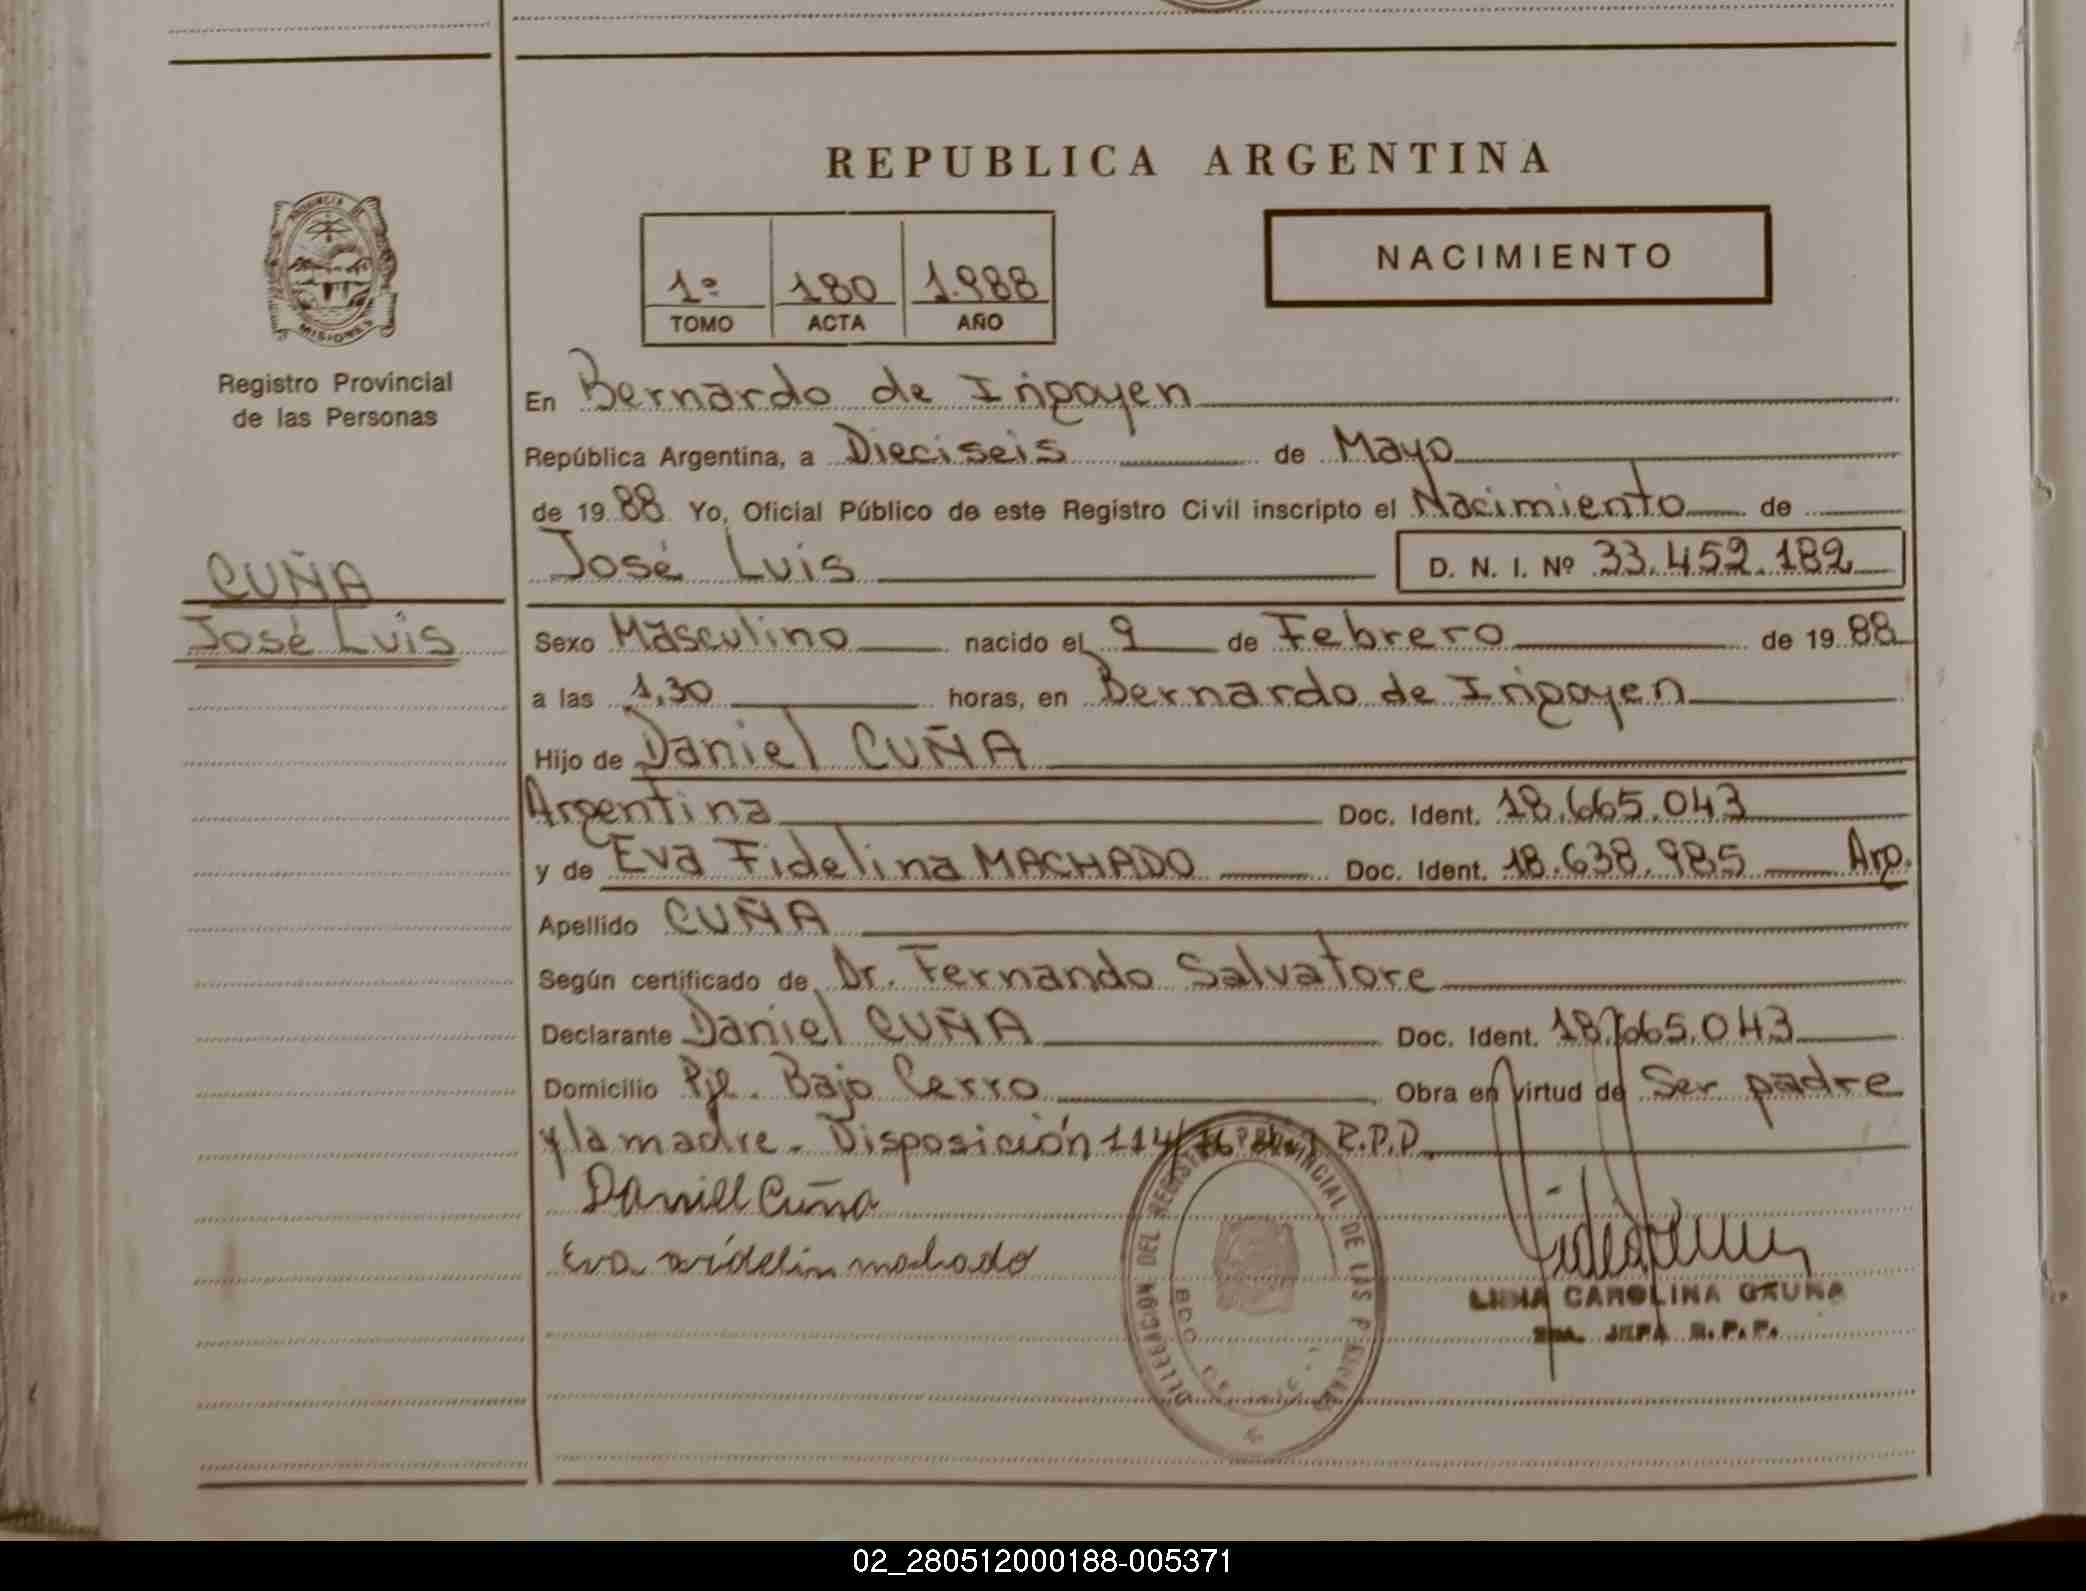 REPUBLICA ARGENTINA
PROVINCIA DE
MISIONES
Registro Provincial
de las Personas
NACIMIENTO
1º 180 1.988
TOMO ACTA AÑO
En Bernardo de Irigoyen
República Argentina, a Dieciseis de Mayo
de 1988 Yo, Oficial Público de este Registro Civil inscripto el Nacimiento de
José Luis D. N. I. Nº 33.452.182
CUÑA
José Luis
Sexo Masculino nacido el 9 de Febrero de 1988
a las 1,30 horas, en Bernardo de Irigoyen
Hijo de Daniel CUÑA
Argentina Doc. Ident. 18.665.043
y de Eva Fidelina MACHADO Doc. Ident. 18.638.985 Arg.
Apellido CUÑA
Según certificado de Dr. Fernando Salvatore
Declarante Daniel CUÑA Doc. Ident. 18.665.043
Domicilio Pje. Bajo Cerro Obra en virtud de Ser padre
y la madre. Disposición 114/ R.P.P.
Daniel Cuña
Eva machado
DELEGACION DEL REGISTRO PROVINCIAL DE LAS
BDO
CAROLINA
JEFA R.P.P.
02_280512000188-005371